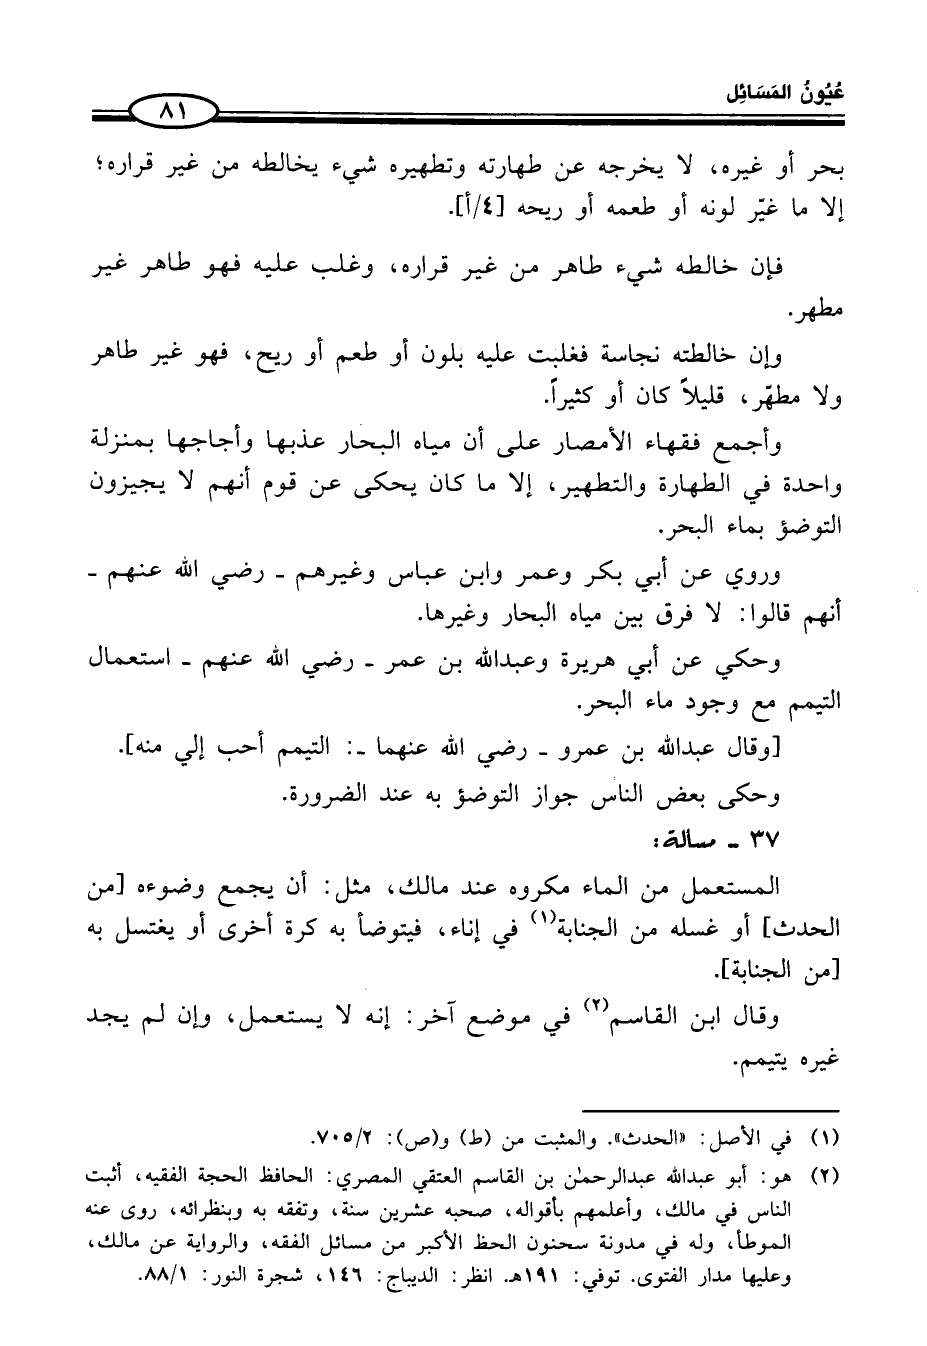 عُيُونُ المَسَائِل
٨١
بحر أو غيره، لا يخرجه عن طهارته وتطهيره شيء يخالطه من غير قراره؛
إلا ما غيّر لونه أو طعمه أو ريحه [٤/أ].
فإن خالطه شيء طاهر من غير قراره، وغلب عليه فهو طاهر غير
مطهر.
وإن خالطته نجاسة فغلبت عليه بلون أو طعم أو ريح، فهو غير طاهر
ولا مطهّر، قليلاً كان أو كثيراً.
وأجمع فقهاء الأمصار على أن مياه البحار عذبها وأجاجها بمنزلة
واحدة في الطهارة والتطهير، إلا ما كان يحكى عن قوم أنهم لا يجيزون
التوضؤ بماء البحر.
وروي عن أبي بكر وعمر وابن عباس وغيرهم ـ رضي الله عنهم ـ
أنهم قالوا: لا فرق بين مياه البحار وغيرها.
وحكي عن أبي هريرة وعبدالله بن عمر ـ رضي الله عنهم ـ استعمال
التيمم مع وجود ماء البحر.
[وقال عبدالله بن عمرو ـ رضي الله عنهما ـ: التيمم أحب إلي منه].
وحكى بعض الناس جواز التوضؤ به عند الضرورة.
٣٧ ـ مسالة:
المستعمل من الماء مكروه عند مالك، مثل: أن يجمع وضوءه [من
الحدث] أو غسله من الجنابة(١) في إناء، فيتوضأ به كرة أخرى أو يغتسل به
[من الجنابة].
وقال ابن القاسم(٢) في موضع آخر: إنه لا يستعمل، وإن لم يجد
غيره يتيمم.
(١) في الأصل: «الحدث». والمثبت من (ط) و(ص): ٧٠٥/٢.
(٢) هو: أبو عبدالله عبدالرحمٰن بن القاسم العتقي المصري: الحافظ الحجة الفقيه، أثبت
الناس في مالك، وأعلمهم بأقواله، صحبه عشرين سنة، وتفقه به وبنظرائه، روى عنه
الموطأ، وله في مدونة سحنون الحظ الأكبر من مسائل الفقه، والرواية عن مالك،
وعليها مدار الفتوى. توفي: ١٩١هـ. انظر: الديباج: ١٤٦، شجرة النور: ٨٨/١.